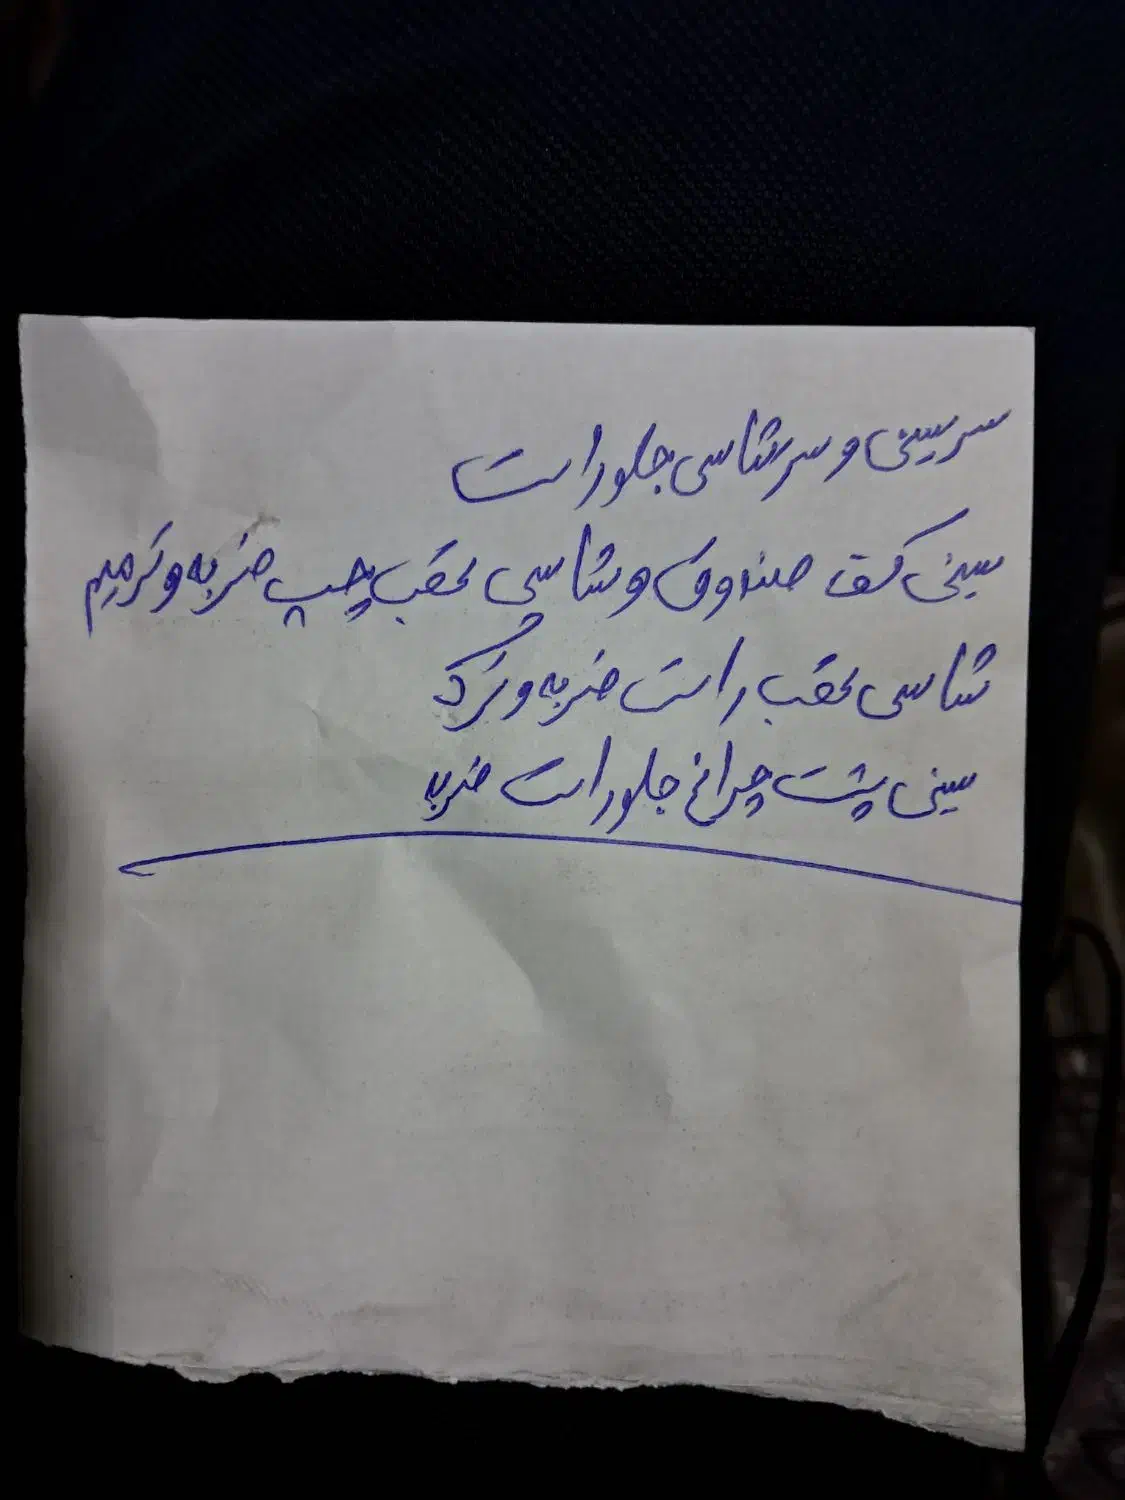 سرسینی و سرشاسی جلو راست
سینی کف صندوق و شاسی عقب چپ ضربه و ترمیم
شاسی عقب راست ضربه و ترک
سینی پشت چراغ جلو راست ضربه